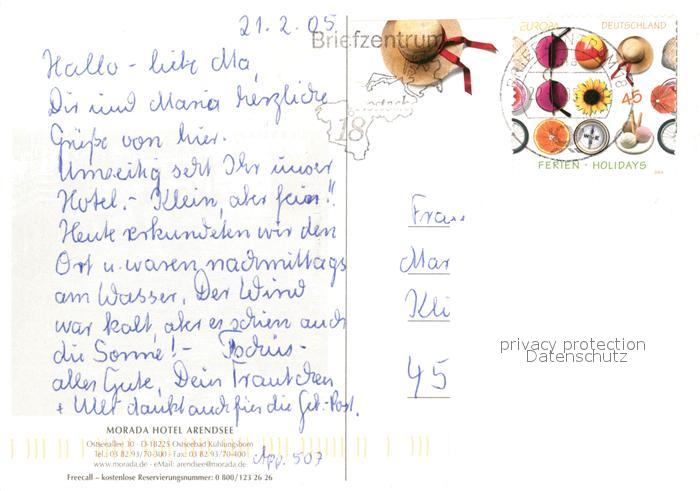 21.2.05
Hallo - liebe Ma,
Dir und Maria herzliche
Grüße von hier.
Umseitig seht Ihr unser
Hotel. - Klein, aber fein!!
Heute erkundeten wir den
Ort u. waren nachmittags
am Wasser. Der Wind
war kalt, aber es schien auch
die Sonne! - Tschüs -
alles Gute, Dein Trautchen
+ Ulli dankt auch für die Geb.-Post.
MORADA HOTEL ARENDSEE
Ostseeallee 30 · D-18225 Ostseebad Kühlungsborn
Tel.: 03 82 93/70-300 · Fax: 03 82 93/70-400
www.morada.de · eMail: arendsee@morada.de
Freecall – kostenlose Reservierungsnummer: 0 800/123 26 26
App. 507
Briefzentrum
18
EUROPA DEUTSCHLAND
45
FERIEN · HOLIDAYS
Frau
Mar
Kli
45
privacy protection
Datenschutz